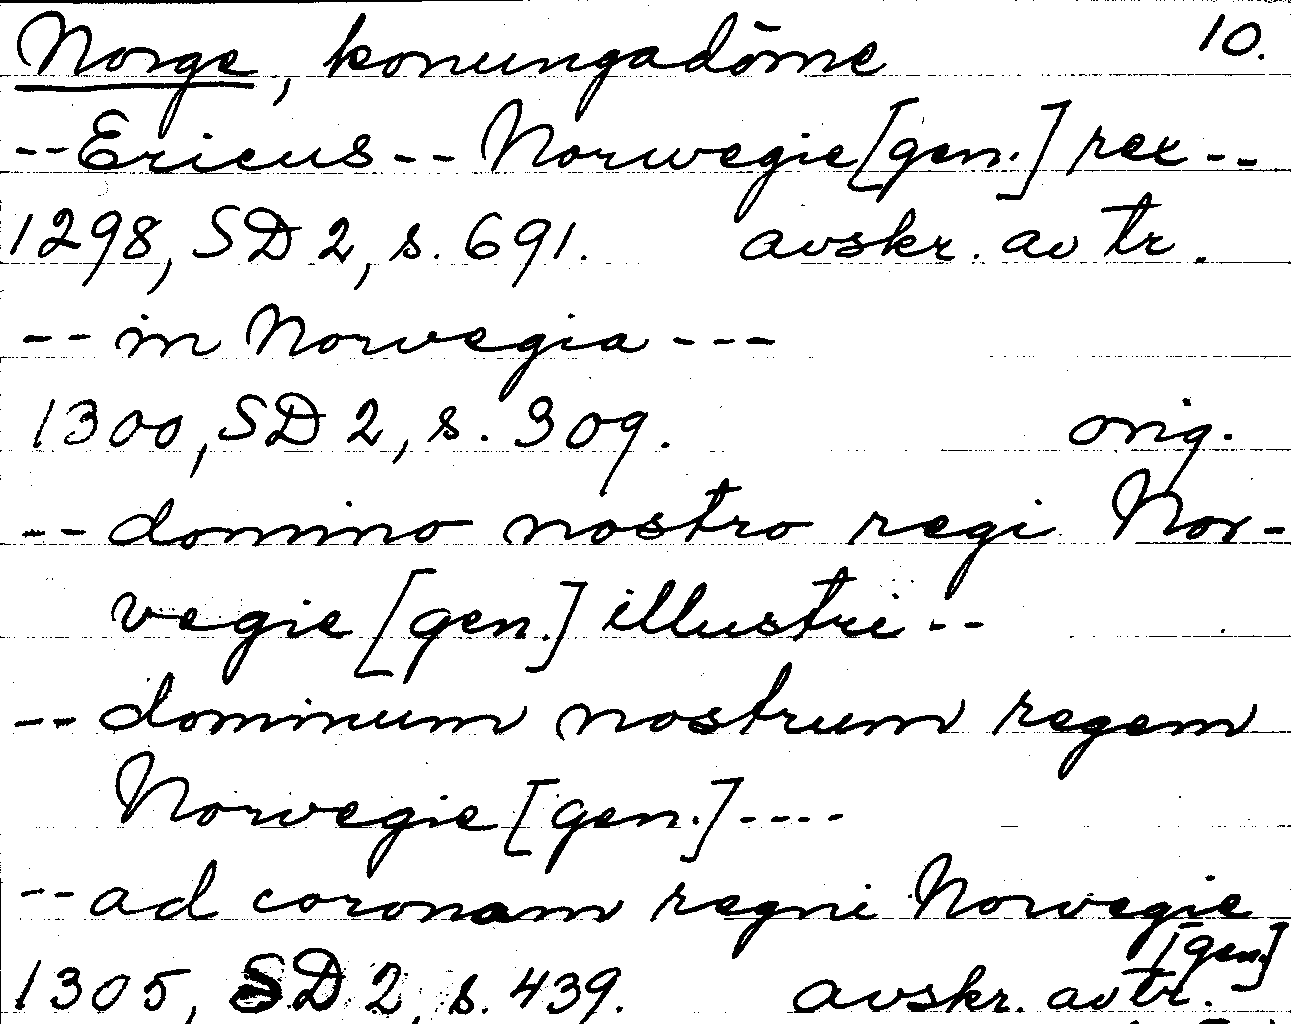 Norge, konungadöme 10.
--Ericus-- Norwegie [gen.] rex--
1298, SD 2, s. 691. avskr. av tr.
-- in Norwegia ---
1300, SD 2, s. 309. orig.
-- domino nostro regi Nor-
vegie [gen.] illustri--
-- dominum nostrum regem
Norwegie [gen.] ----
-- ad coronam regni Norwegie
[gen.]
1305, SD 2, s. 439. avskr. av tr.